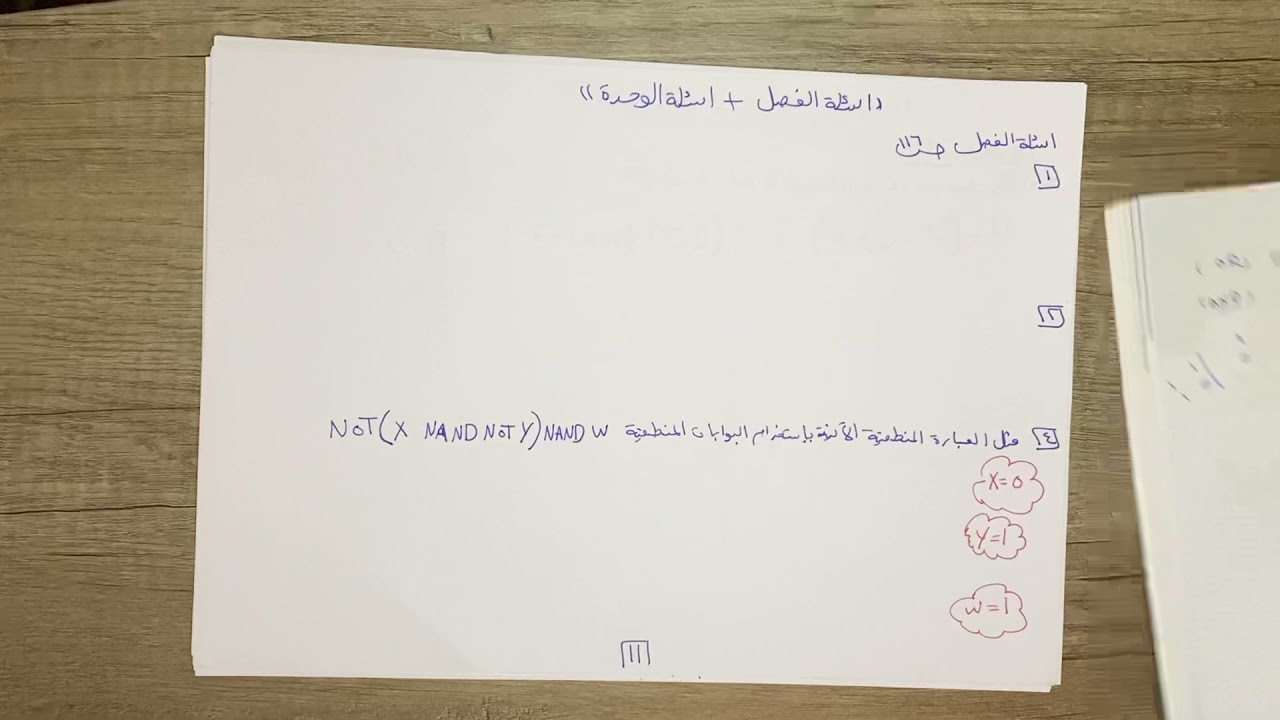 « اسئلة الفصل + اسئلة الوحدة »
اسئلة الفصل ص١١٦
١
٢
٤ مثل العبارة المنطقية الآتية بإستخدام البوابات المنطقية NOT(X NAND NOT Y)NAND W
X=0
Y=1
W=1
11